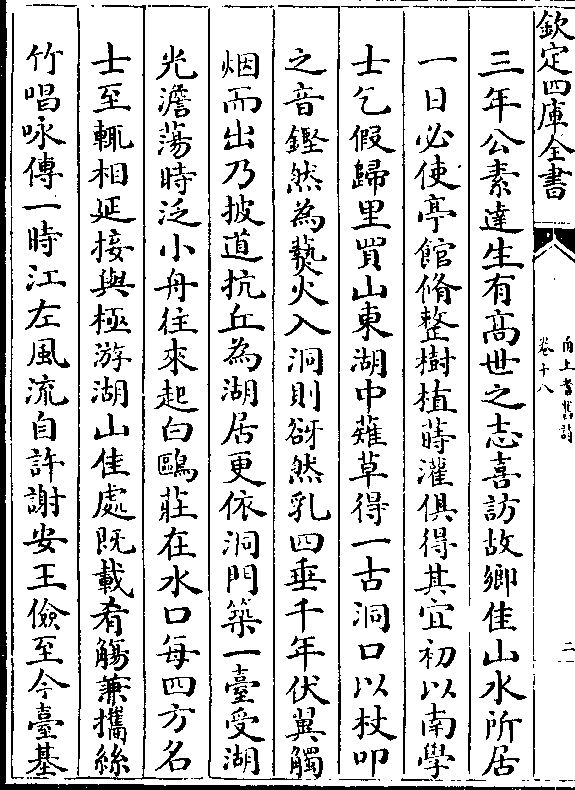 欽定四庫全書
甬上耆舊詩
卷十八
二
三年公素達生有髙世之志喜訪故鄉佳山水所居
一日必使亭館脩整樹植蒔灌俱得其宜初以南學
士乞假歸里買山東湖中薙草得一古洞口以杖叩
之音鏗然為爇火入洞則谺然乳四垂千年伏翼觸
烟而出乃披道抗丘為湖居更依洞門築一臺受湖
光澹蕩時泛小舟往來起白鷗莊在水口每四方名
士至輒相延接與極游湖山佳處既載肴觴兼攜絲
竹唱咏傳一時江左風流自許謝安王儉至今臺基